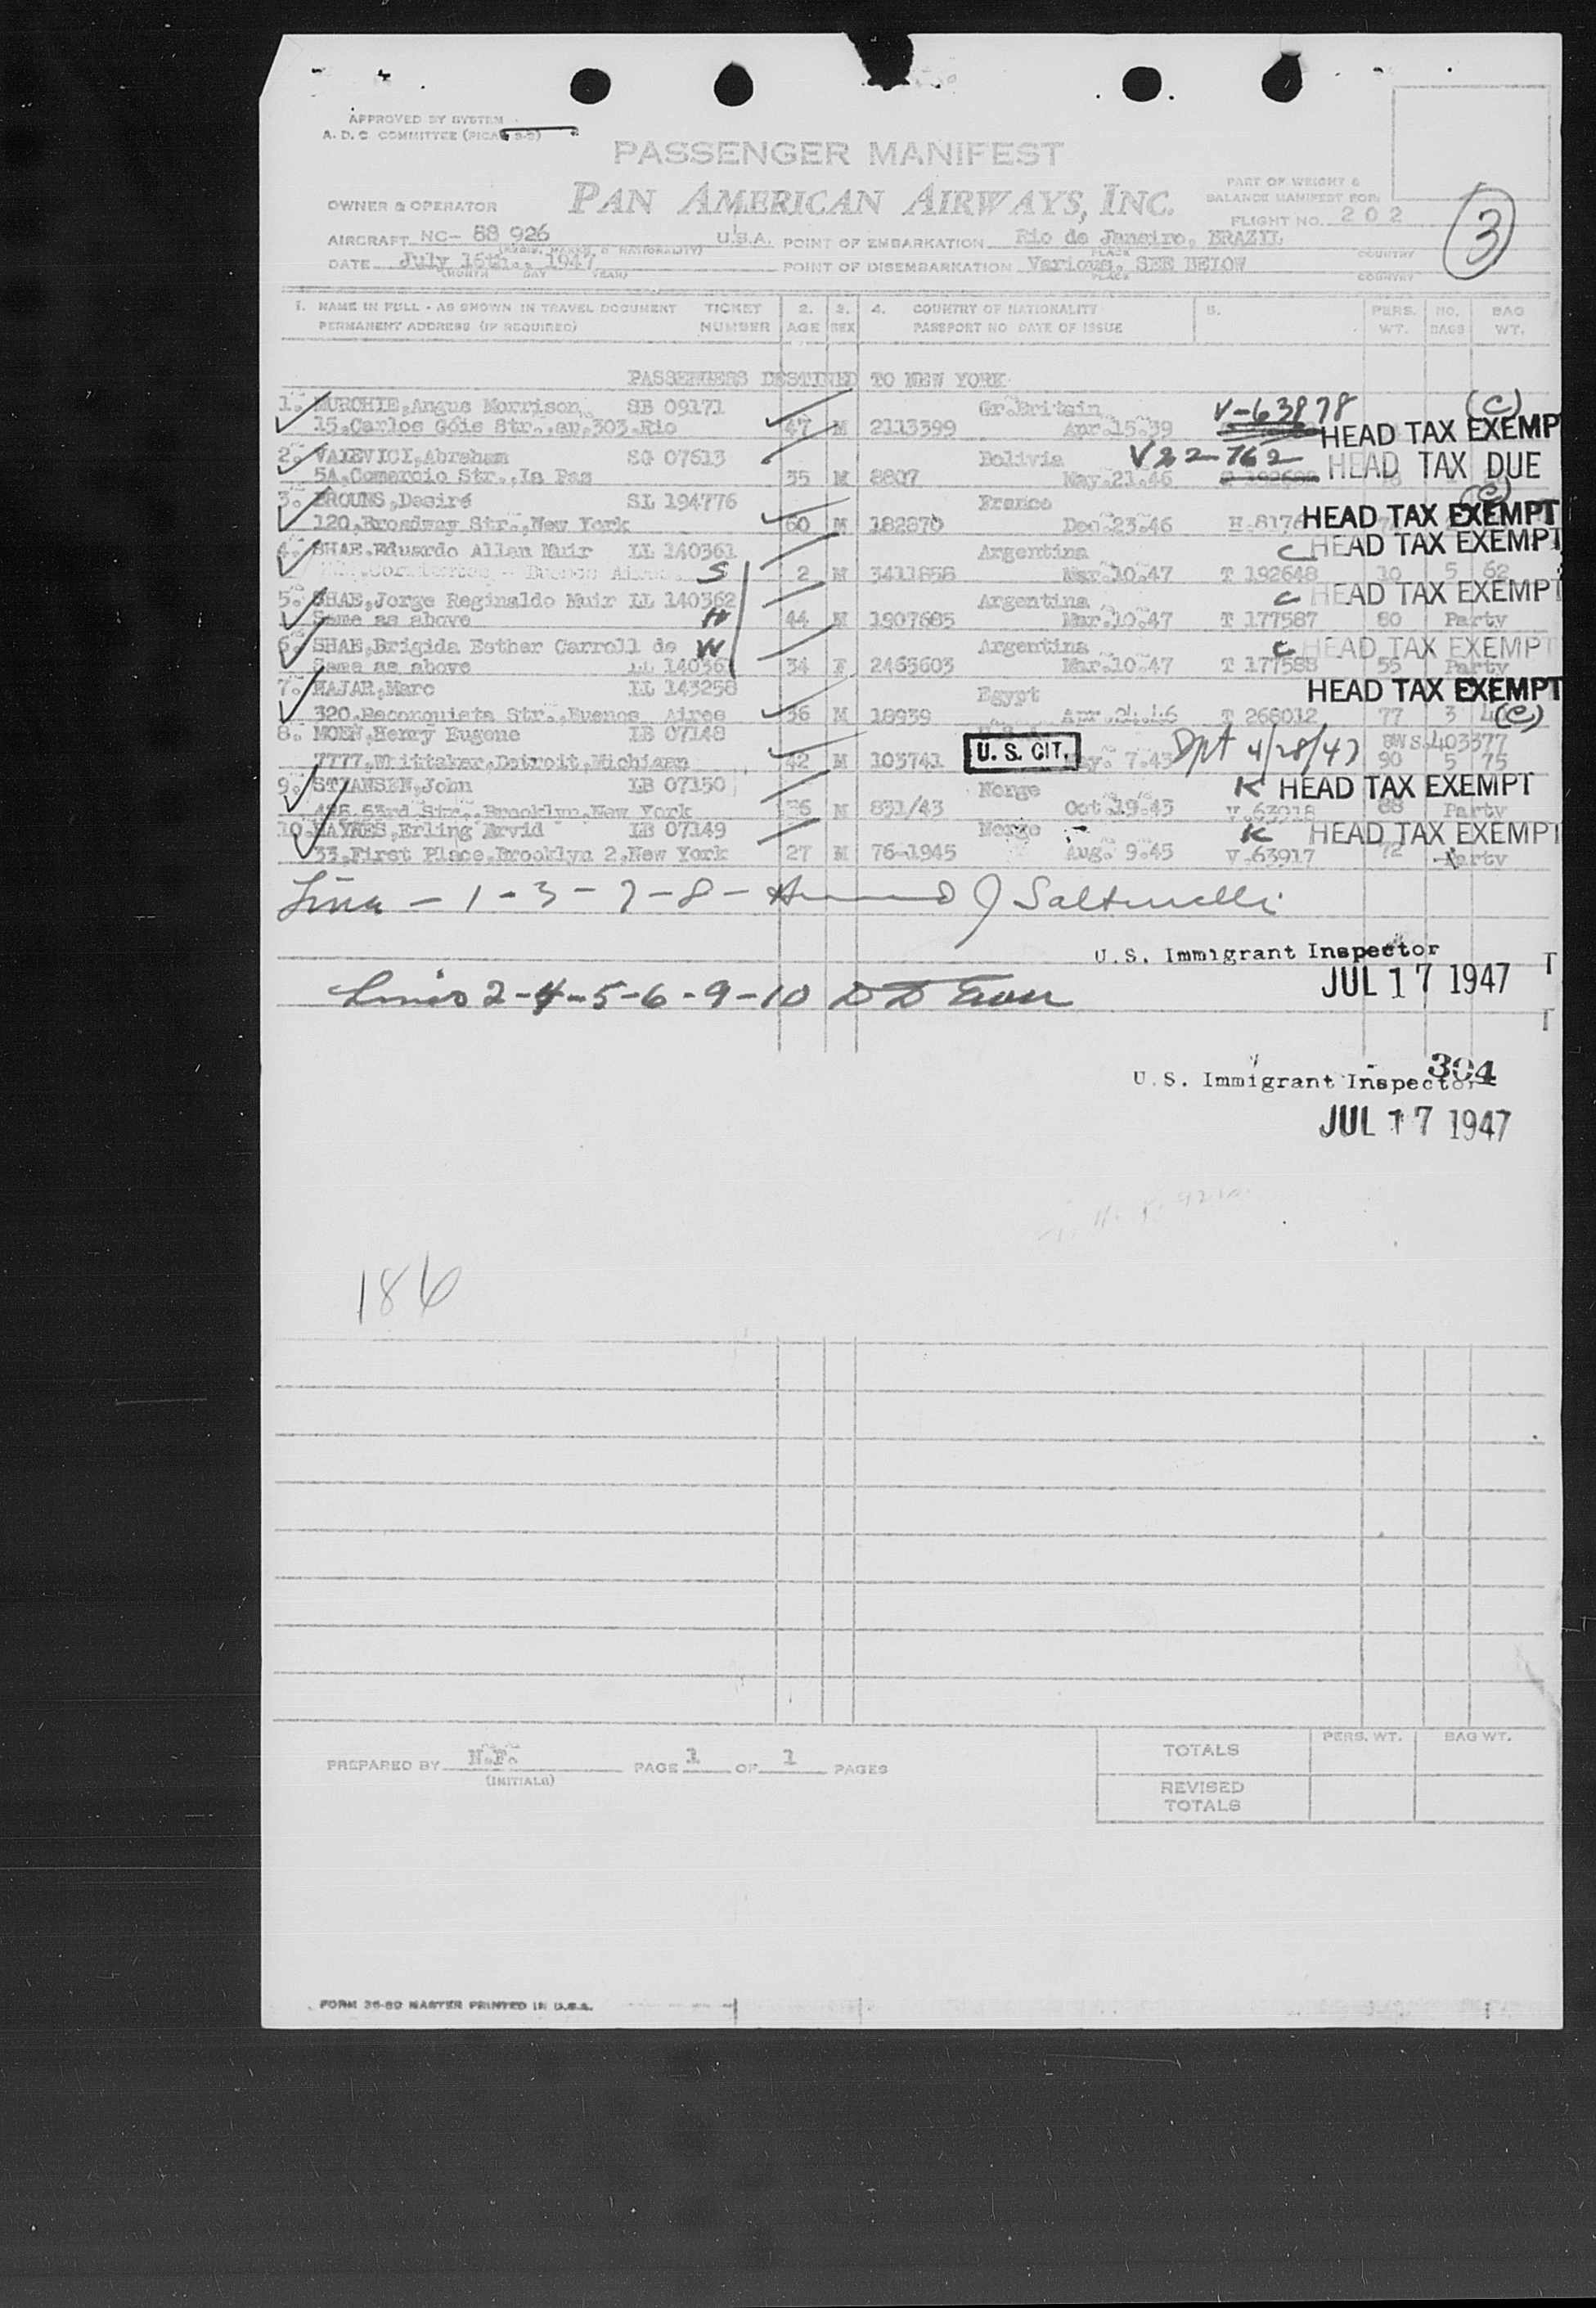 APPROVED BY SYSTEM
A. D. C. COMMITTEE
PASSENGER MANIFEST
PAN AMERICAN AIRWAYS, INC.
PART OF WEIGHT &
BALANCE MANIFEST FOR:
OWNER & OPERATOR
FLIGHT NO. 202
3
AIRCRAFT NC- 88 926 U.S.A. POINT OF EMBARKATION Rio de Janeiro, BRAZIL
PLACE COUNTRY
DATE July 16th., 1947 POINT OF DISEMBARKATION Various, SEE BELOW
(MONTH DAY YEAR) PLACE COUNTRY
1. NAME IN FULL - AS SHOWN IN TRAVEL DOCUMENT TICKET 2. 3. 4. COUNTRY OF NATIONALITY 5. PERS. NO. BAG
PERMANENT ADDRESS (IF REQUIRED) NUMBER AGE SEX PASSPORT NO DATE OF ISSUE WT. BAGS WT.
PASSENGERS DESTINED TO NEW YORK
1. MURCHIE, Angus Morrison SB 09171 Gr.Britain V-63878 (C)
15, Carlos Góis Str., ap. 303.Rio 47 M 2113399 Apr.15.39 HEAD TAX EXEMP
2. VAIEVICI, Abraham SG 07613 Bolivia V22-762 HEAD TAX DUE
5A, Comercio Str., La Paz 35 M 8807 May.21.46
3. BROUNS, Desiré SL 194776 France (C)
120, Broadway Str., New York 60 M 182870 Dec.23.46 HEAD TAX EXEMPT
4. SHAE, Eduardo Allan Muir LL 140361 Argentina C HEAD TAX EXEMPT
S 2 M 3411858 Mar.10.47 T 192648 10 5 62
5. SHAE, Jorge Reginaldo Muir LL 140362 Argentina C HEAD TAX EXEMPT
Same as above H 44 M 1907685 Mar.10.47 T 177587 80 Party
6. SHAE, Brigida Esther Carroll de W Argentina C HEAD TAX EXEMPT
Same as above LL 14036 34 F 2463603 Mar.10.47 T 177588 55 Party
7. HAJAR, Marc LL 143258 Egypt HEAD TAX EXEMPT
320, Reconquista Str., Buenos Aires 36 M 18939 Apr.24.46 T 268012 77 3 (C)
8. MOEN, Henry Eugene LB 07148 U. S. CIT. Dpt 4/28/47 403377
7777, Whittaker, Detroit, Michigan 42 M 103741 7.43 90 5 75
9. STIANSEN, John LB 07150 Norge K HEAD TAX EXEMPT
426.53rd Str., Brooklyn, New York 36 M 831/43 Oct.19.43 V.63918 88 Party
10. HAYNES, Erling Arvid LB 07149 Norge K HEAD TAX EXEMPT
33, First Place, Brooklyn 2, New York 27 M 76-1945 Aug. 9.45 V.63917 72 Party
1 - 3 - 7 - 8 - J Saltmelli
U. S. Immigrant Inspector
JUL 17 1947
Lines 2-4-5-6-9-10
304
U. S. Immigrant Inspector
JUL 17 1947
186
PREPARED BY H.F. PAGE 1 OF 1 PAGES
(INITIALS)
PERS. WT. BAG WT.
TOTALS
REVISED
TOTALS
FORM 36-80 MASTER PRINTED IN U.S.A.